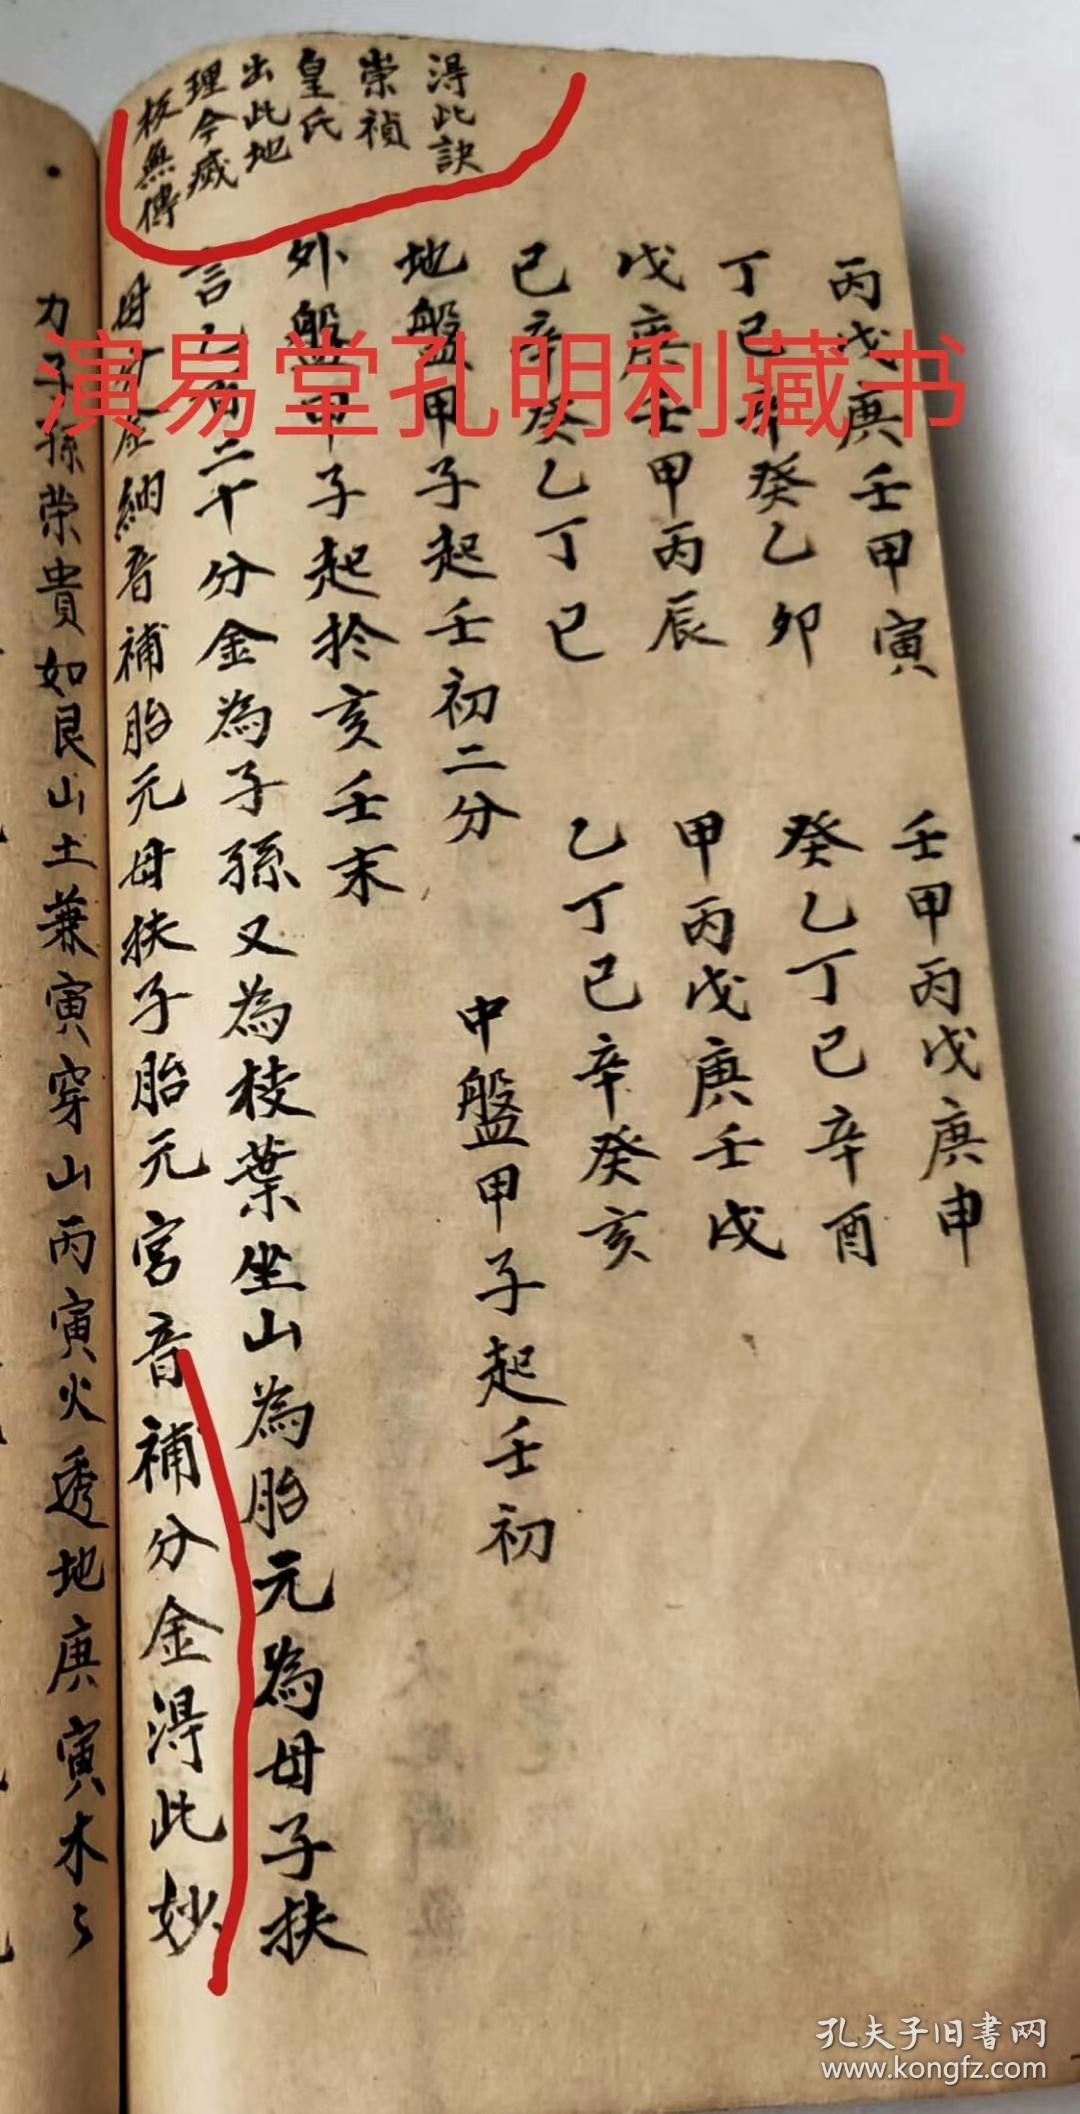 得此訣
崇禎
皇氏
出此地
理今威
板無傳
丙戊庚壬甲寅
壬甲丙戊庚申
丁己辛癸乙卯
癸乙丁己辛酉
戊庚壬甲丙辰
甲丙戊庚壬戌
己辛癸乙丁巳
乙丁己辛癸亥
地盤甲子起壬初二分
中盤甲子起壬初
外盤甲子起於亥壬末
言 二十分金為子孫又為枝葉坐山為胎元為母子扶
母 納音補胎元母扶子胎元宮音補分金得此妙
力子孫榮貴如艮山土兼寅穿山丙寅火透地庚寅木
演易堂孔明利藏书
孔夫子旧書网
www.kongfz.com